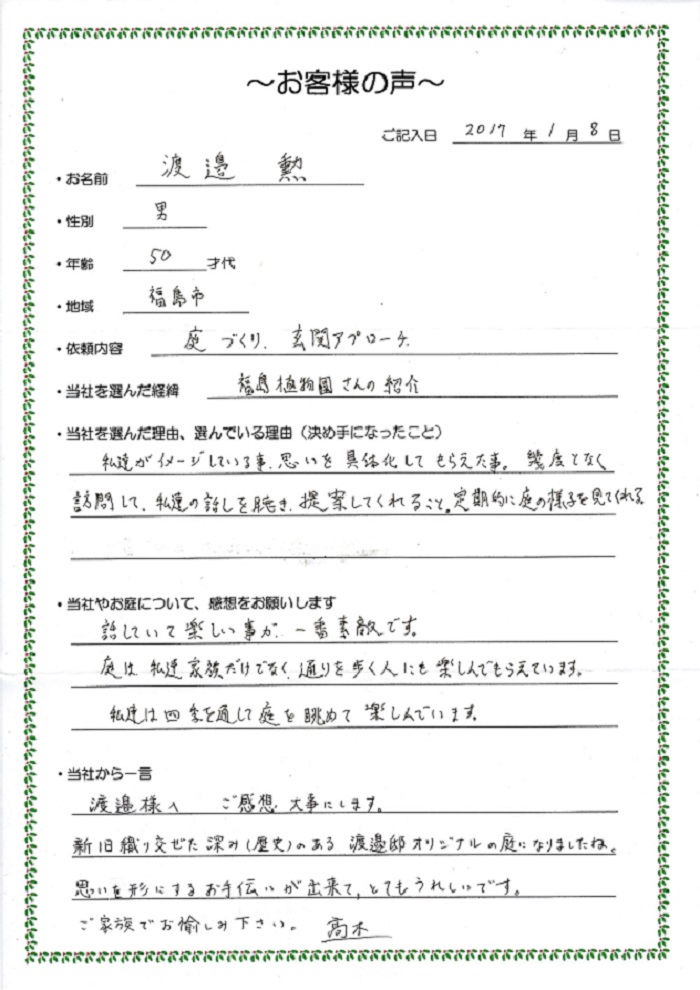 ～お客様の声～
ご記入日 2017 年 1 月 8 日
・お名前 渡邉 勲
・性別 男
・年齢 50 才代
・地域 福島市
・依頼内容 庭づくり、玄関アプローチ
・当社を選んだ経緯 福島植物園さんの紹介
・当社を選んだ理由、選んでいる理由（決め手になったこと）
私達がイメージしている事、思いを具体化してもらえた事。幾度となく
訪問して、私達の話しを聴き、提案してくれること。定期的に庭の様子を見てくれる
・当社やお庭について、感想をお願いします
話していて楽しい事が、一番素敵です。
庭は私達家族だけでなく、通りを歩く人にも楽しんでもらえています。
私達は四季を通して庭を眺めて楽しんでいます。
・当社から一言
渡邉様へ ご感想、大事にします。
新旧織り交ぜた深み(歴史)のある渡邉邸オリジナルの庭になりましたね。
思いを形にするお手伝いが出来て、とてもうれしいです。
ご家族でお愉しみ下さい。 高木